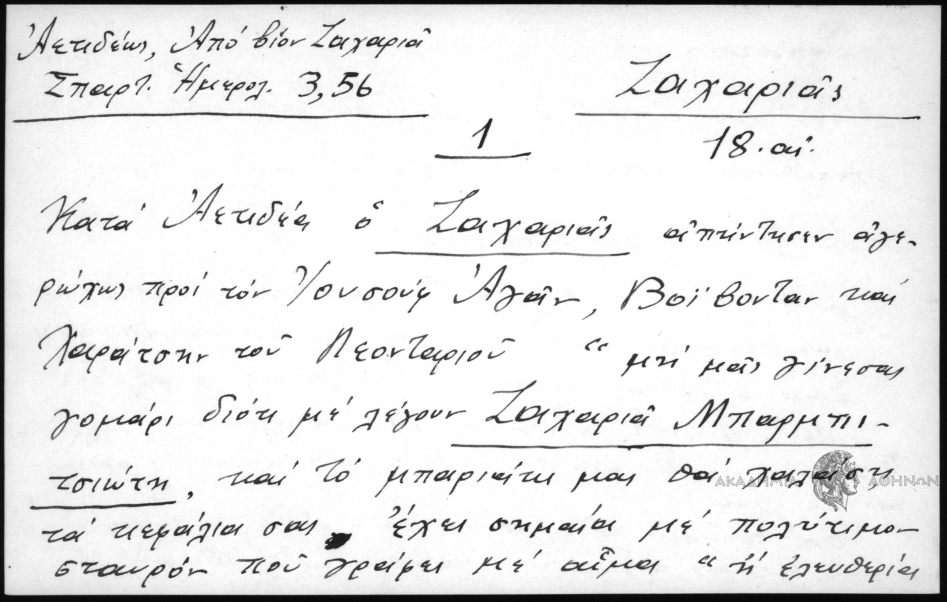 Ἀετιδέως, Ἀπό βίον Ζαχαριᾶ
Σπαρτ. Ἡμερολ. 3,56
Ζαχαριᾶς
18. αἰ.
1
Κατά Ἀετιδέα ὁ Ζαχαριᾶς ἀπήντησεν ἀγε-
ρώχως πρός τόν Ἰουσούφ Ἀγᾶν, Βοϊβονταν καί
Χαράτσην τοῦ Λεονταριοῦ "μή μᾶς γίνεσαι
γομάρι διότι μέ λέγουν Ζαχαριᾶ Μπαρμπι-
τσιώτη, καί τό μπαριάτι μας θά χαλάση,
τά κεφάλια σας. Ἔχει σημαία μέ πολύτιμον
σταυρόν πού γράφει μέ αἷμα "ἡ ἐλευθερία
ΑΚΑΔΗΜΙΑ ΑΘΗΝΩΝ